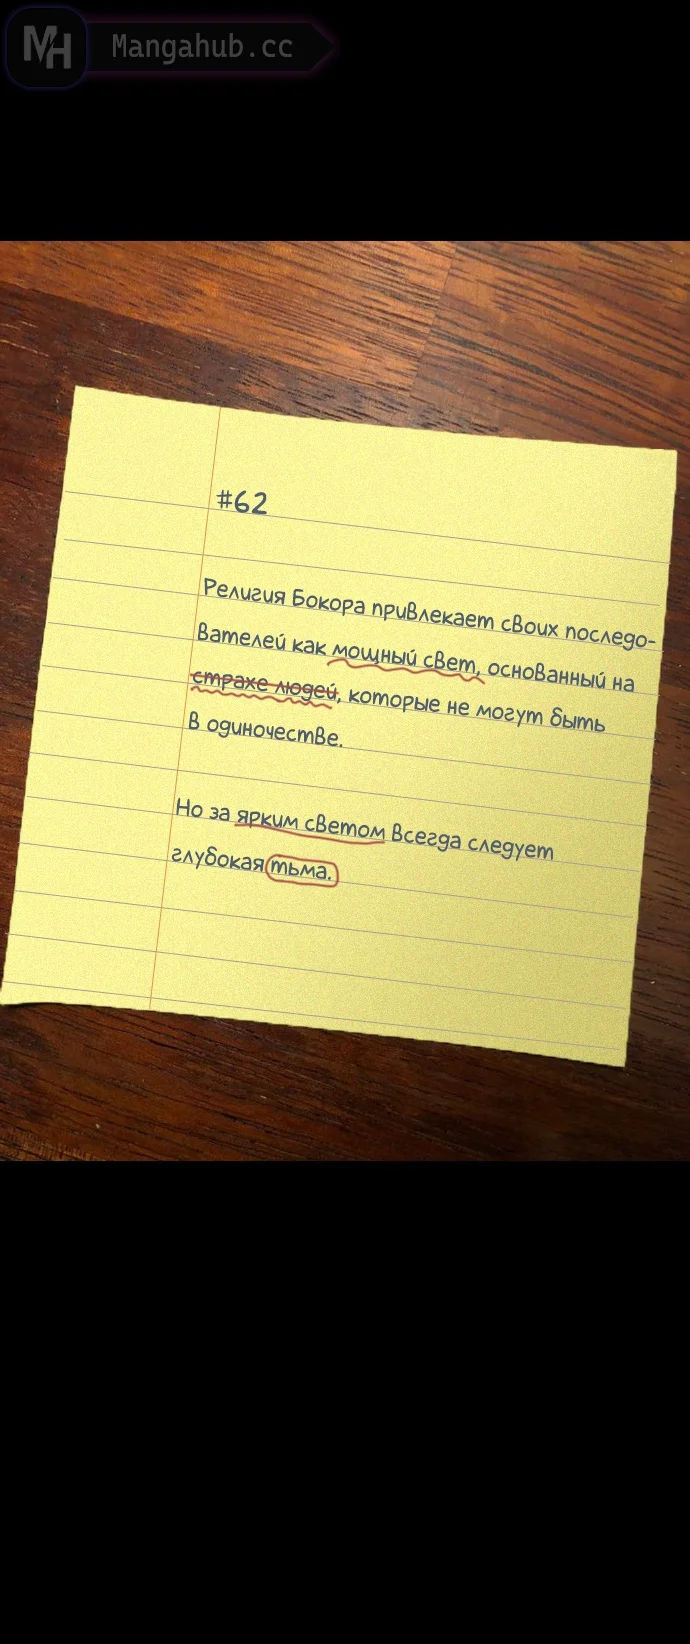 MH Mangahub.cc
#62
Религия Бокора привлекает своих последо-
вателей как мощный свет, основанный на
страхе людей, которые не могут быть
в одиночестве.
Но за ярким светом всегда следует
глубокая тьма.